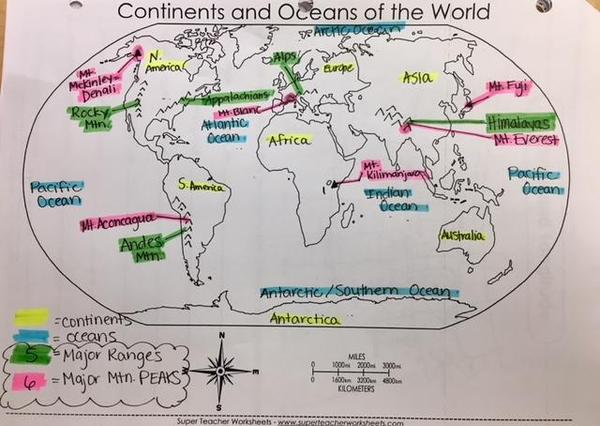 Continents and Oceans of the World
Arctic Ocean
N.
America
Mt.
McKinley=
Denali
Rocky
Mtn.
Alps
Europe
Asia
Mt. Fuji
Appalachians
Mt. Blanc
Atlantic
Ocean
Africa
Himalayas
Mt. Everest
Mt.
Kilimanjaro
Indian
Ocean
Pacific
Ocean
Pacific
Ocean
S. America
Mt. Aconcagua
Andes
Mtn.
Australia
Antarctic/Southern Ocean
Antarctica
= continents
= oceans
5 = Major Ranges
6 = Major Mtn. PEAKS
N
W
E
S
MILES
0 1000mi 2000mi 3000mi
0 1600km 3200km 4800km
KILOMETERS
Super Teacher Worksheets - www.superteacherworksheets.com